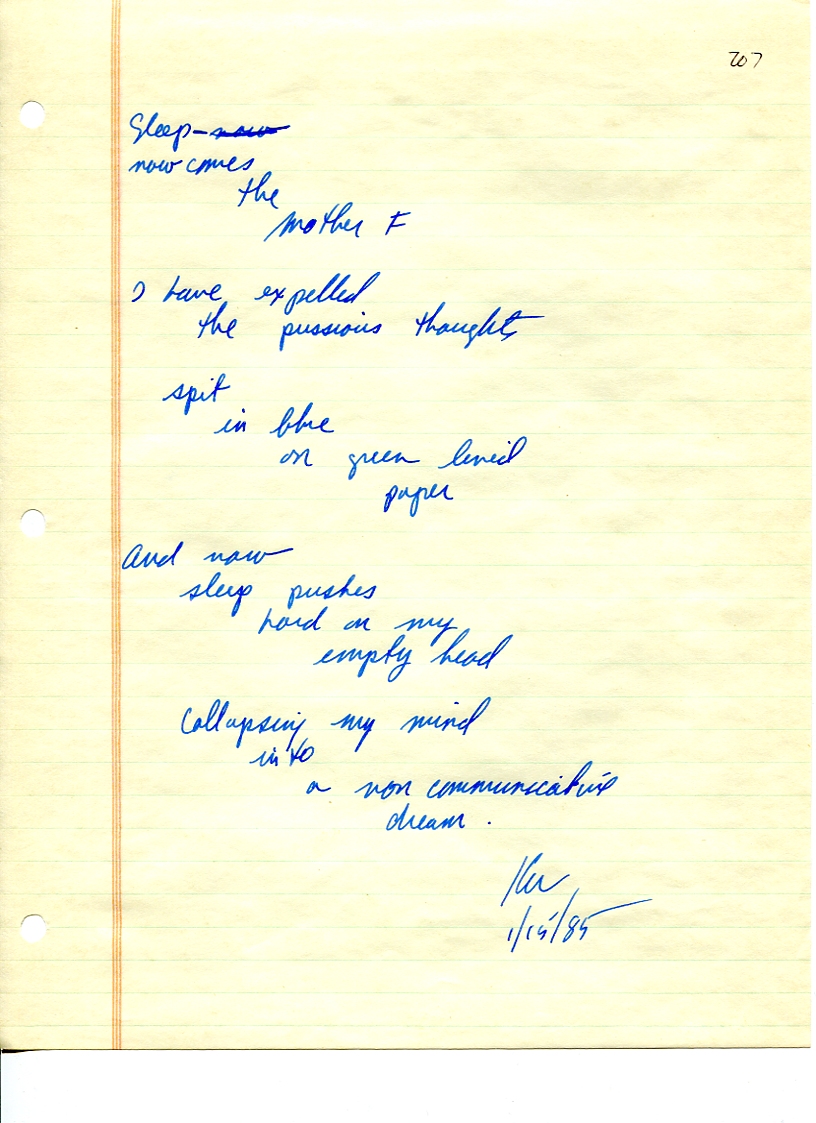 207
Sleep - now
now comes
the
mother F
I have expelled
the pussious thoughts
spit
in blue
on green lined
paper
And now
sleep pushes
hard on my
empty head
Collapsing my mind
into
a non communicative
dream.
1/15/85